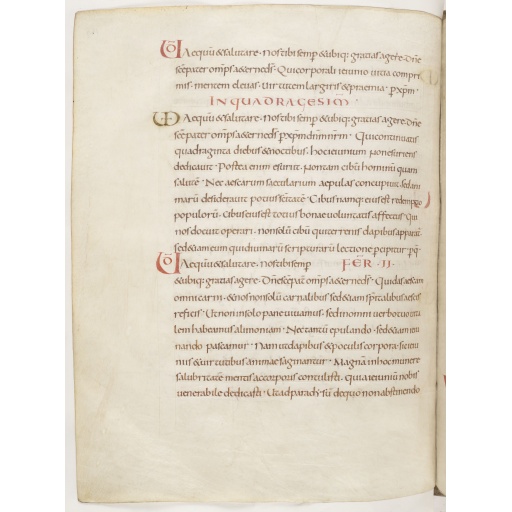 UD Aequū &salutare · Nostibi semp &ubiq; gratias agere · Dn̄e
sc̄epater omp̄s aeterneds̄ · Qui corporali ieiunio uitia compri
mis · mentem eleuas · Uirtutem largiris &praemia · p xp̄m ·
IN QUADRAGESIM̄ ·
UD Aequū &salutare · Nostibi semp &ubiq; gratias agere · dn̄e
sc̄epater omp̄s aeterneds̄ · p xp̄m dn̄m nr̄m · Qui continuatis
quadraginta diebus &noctibus · hocieiunium non esuriens
dedicauit · Postea enim esuriit · non tam cibū hominū quam
salutē · Nec aescarum saecularium aepulas concupiuit · sed ani
marū desiderauit potius sc̄itatē · Cibus namq; eius est redemptio
populorū · Cibus eius est totius bonae uoluntatis affectus · Qui
nos docuit operari · non solū cibū qui terrenis dapibus apparat̄
sed &iam eum qui diuinarū scripturarū lectione percipitur · p q̄
UD Aequū &salutare · Nostibi semp FER̄ · II ·
&ubiq; gratias agere · Dn̄e sc̄epat̄ omp̄s aeterneds̄ · Qui das aescam
omni carni · &nos non solū carnalibus sed &iam sp̄italibus aescis
reficis · Ut non in solo pane uiuamus · sed in omni uerbo tuo uita
lem habeamus alimoniam · Nec tantū epulando · sed &iam ieiu
nando pascamur · Nam ut dapibus &poculis corpora · sic ieiu
niis &uirtutibus animae saginantur · Magnā in hoc munere
salubritatē mentis ac corporis contulisti · quia ieiuniū nobis
uenerabile dedicasti · Ut ad paradysū de quo non abstinendo